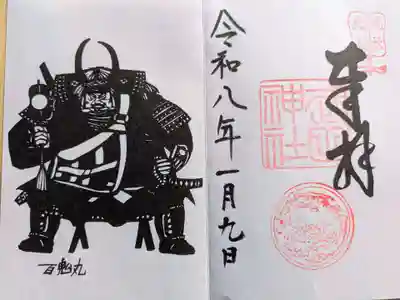 奉拝
神社
令和八年一月九日
百鬼丸